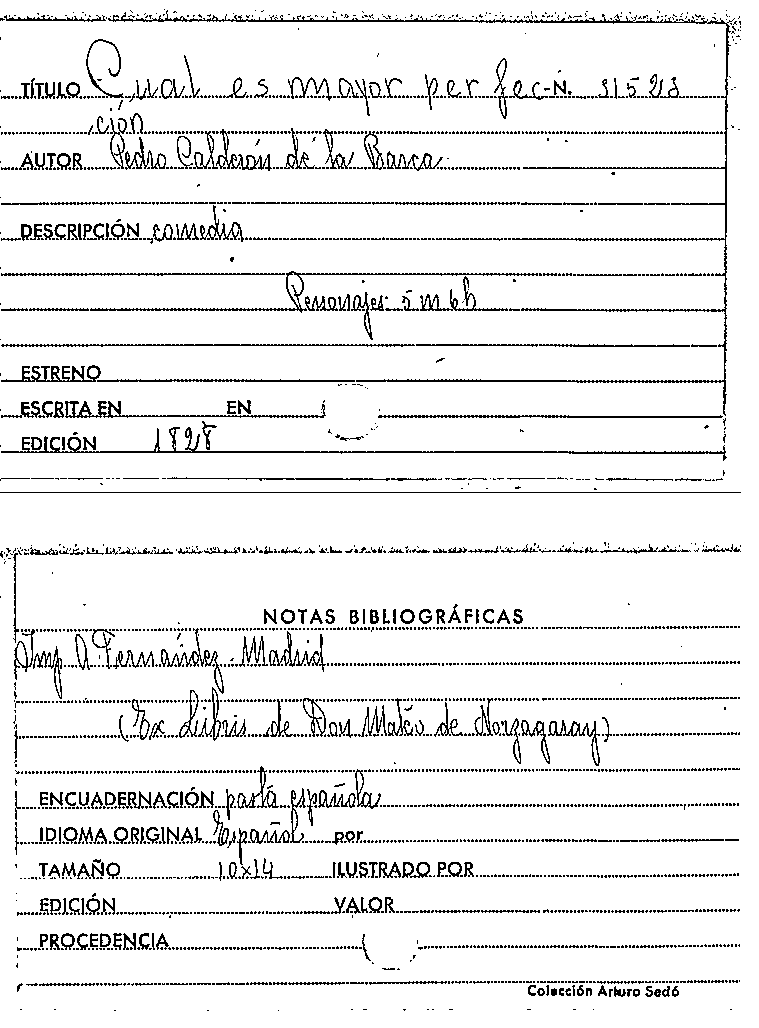 TÍTULO Cual es mayor perfec- N. 31523
ción
AUTOR Pedro Calderón de la Barca
DESCRIPCIÓN comedia
Personajes: 5 m 6 h
ESTRENO
ESCRITA EN EN
EDICIÓN 1828
NOTAS BIBLIOGRÁFICAS
Imp. A. Fernández. Madrid
(Ex Libris de Don Mateo de Norzagaray)
ENCUADERNACIÓN pasta española
IDIOMA ORIGINAL Español por
TAMAÑO 10x14 ILUSTRADO POR
EDICIÓN VALOR
PROCEDENCIA
Colección Arturo Sedó